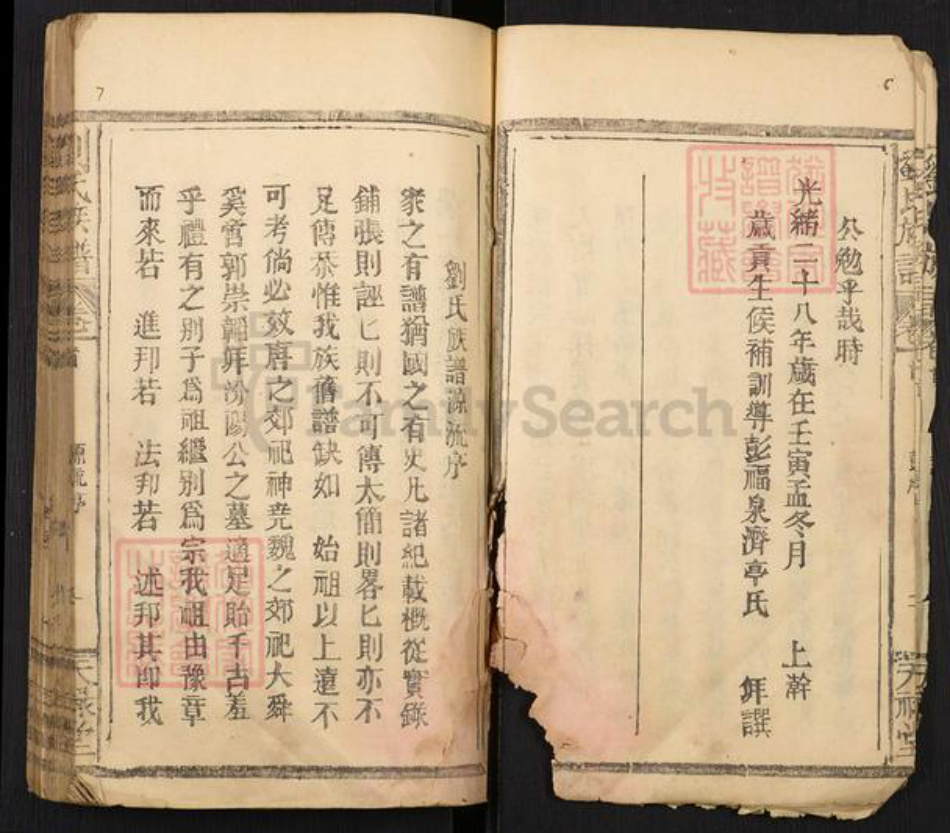 6
公勉乎哉時
光緒二十八年歲在壬寅孟冬月 上澣
歲貢生候補訓導彭福泉濟亭氏 拜譔
7
劉氏族譜源流序
家之有譜猶國之有史凡諸紀載概從實錄
鋪張則誣匕則不可傳太簡則畧匕則亦不
足傳恭惟我族舊譜缺如 始祖以上遠不
可考倘必效唐之郊祀神堯魏之郊祀大舜
奚啻郭崇韜拜汾陽公之墓適足貽千古羞
乎禮有之別子爲祖繼別爲宗我祖由豫章
而來若 進邦若 法邦若 述邦其即我
劉氏族譜
卷首
源流序
天祿堂
FamilySearch